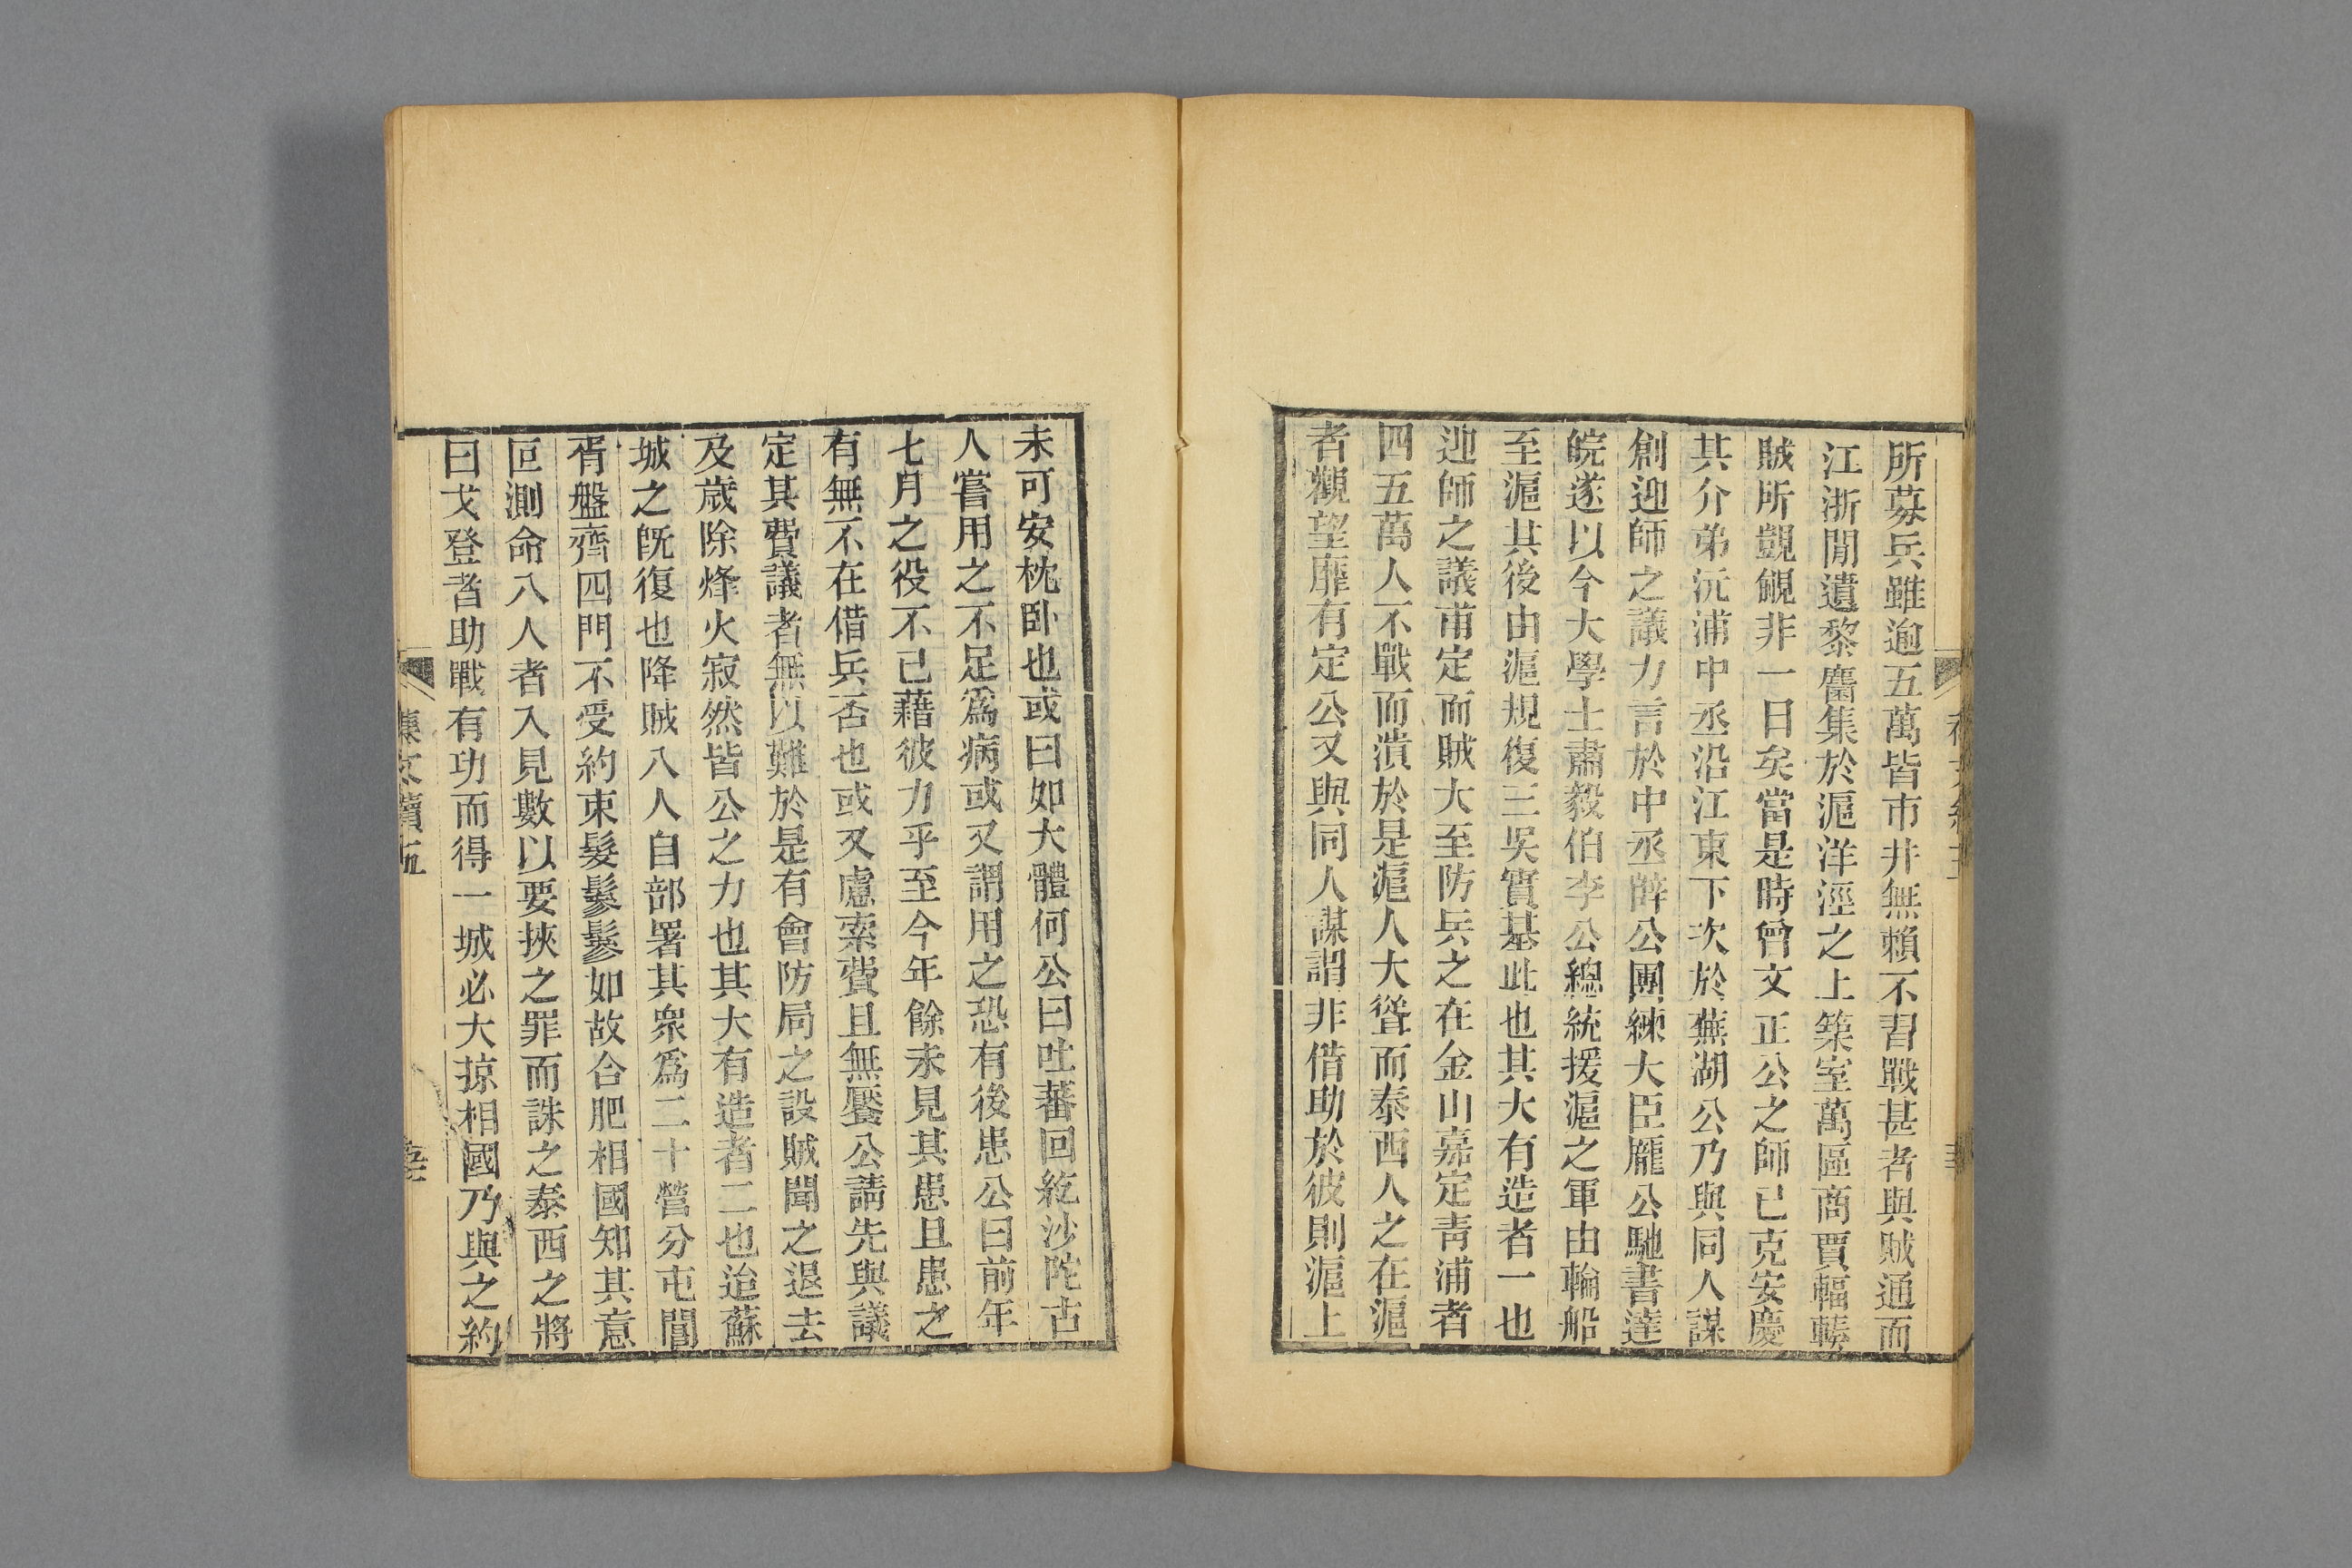 所募兵雖逾五萬皆市井無賴不習戰甚者與賊通而
江浙閒遺黎麕集於滬洋涇之上築室萬區商賈輻輳
賊所覬覦非一日矣當是時曾文正公之師已克安慶
其介弟沅浦中丞沿江東下次於蕪湖公乃與同人謀
創迎師之議力言於中丞薛公團練大臣龐公馳書達
皖遂以今大學士肅毅伯李公總統援滬之軍由輪船
至滬其後由滬規復三吳實基此也其大有造者一也
迎師之議甫定而賊大至防兵之在金山嘉定青浦者
四五萬人不戰而潰於是滬人大聳而泰西人之在滬
者觀望靡有定公又與同人謀謂非借助於彼則滬上
未可安枕卧也或曰如大體何公曰吐蕃回紇沙陀古
人嘗用之不足爲病或又謂用之恐有後患公曰前年
七月之役不已藉彼力乎至今年餘未見其患且患之
有無不在借兵否也或又慮索費且無饜公請先與議
定其費議者無以難於是有會防局之設賊聞之退去
及歲除烽火寂然皆公之力也其大有造者二也迨蘇
城之旣復也降賊八人自部署其衆爲二十營分屯閶
胥盤齊四門不受約束髮鬖鬖如故合肥相國知其意
叵測命八人者入見數以要挾之罪而誅之泰西之將
曰戈登者助戰有功而得一城必大掠相國乃與之約
集文續五